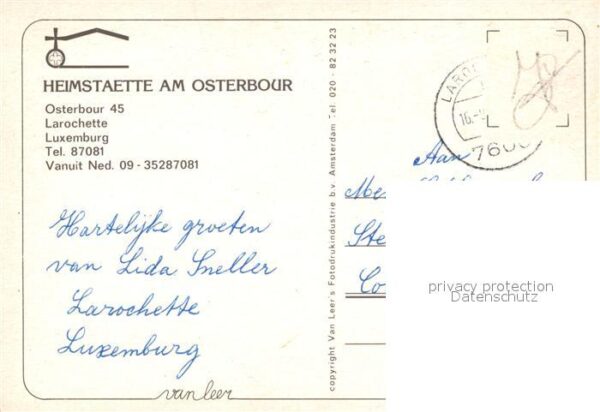 HEIMSTAETTE AM OSTERBOUR
Osterbour 45
Larochette
Luxemburg
Tel. 87081
Vanuit Ned. 09 - 35287081
Hartelijke groeten
van Lida Sneller
Larochette
Luxemburg
van leer
copyright Van Leer's Fotodrukindustrie b.v. Amsterdam Tel. 020 - 82 32 23
LARO
16.-
7600
Aan
Me
Ste
Co
privacy protection
Datenschutz